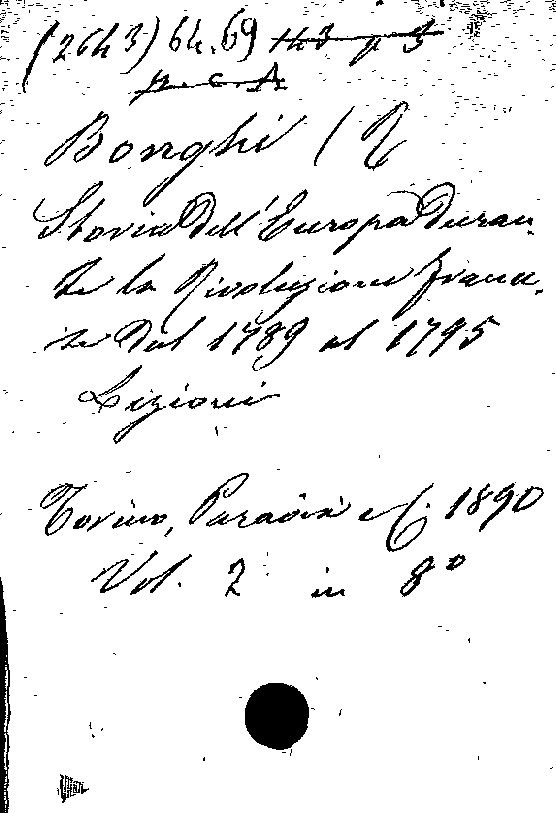 (2643) 64.69 143 p 5
n. c. A
Bonghi (R
Storia Dell'Europa Duran
te la Rivoluzione france.
se Dal 1789 al 1795
Lezioni
Torino, Paravia e C. 1890
Vol. 2 in 8º